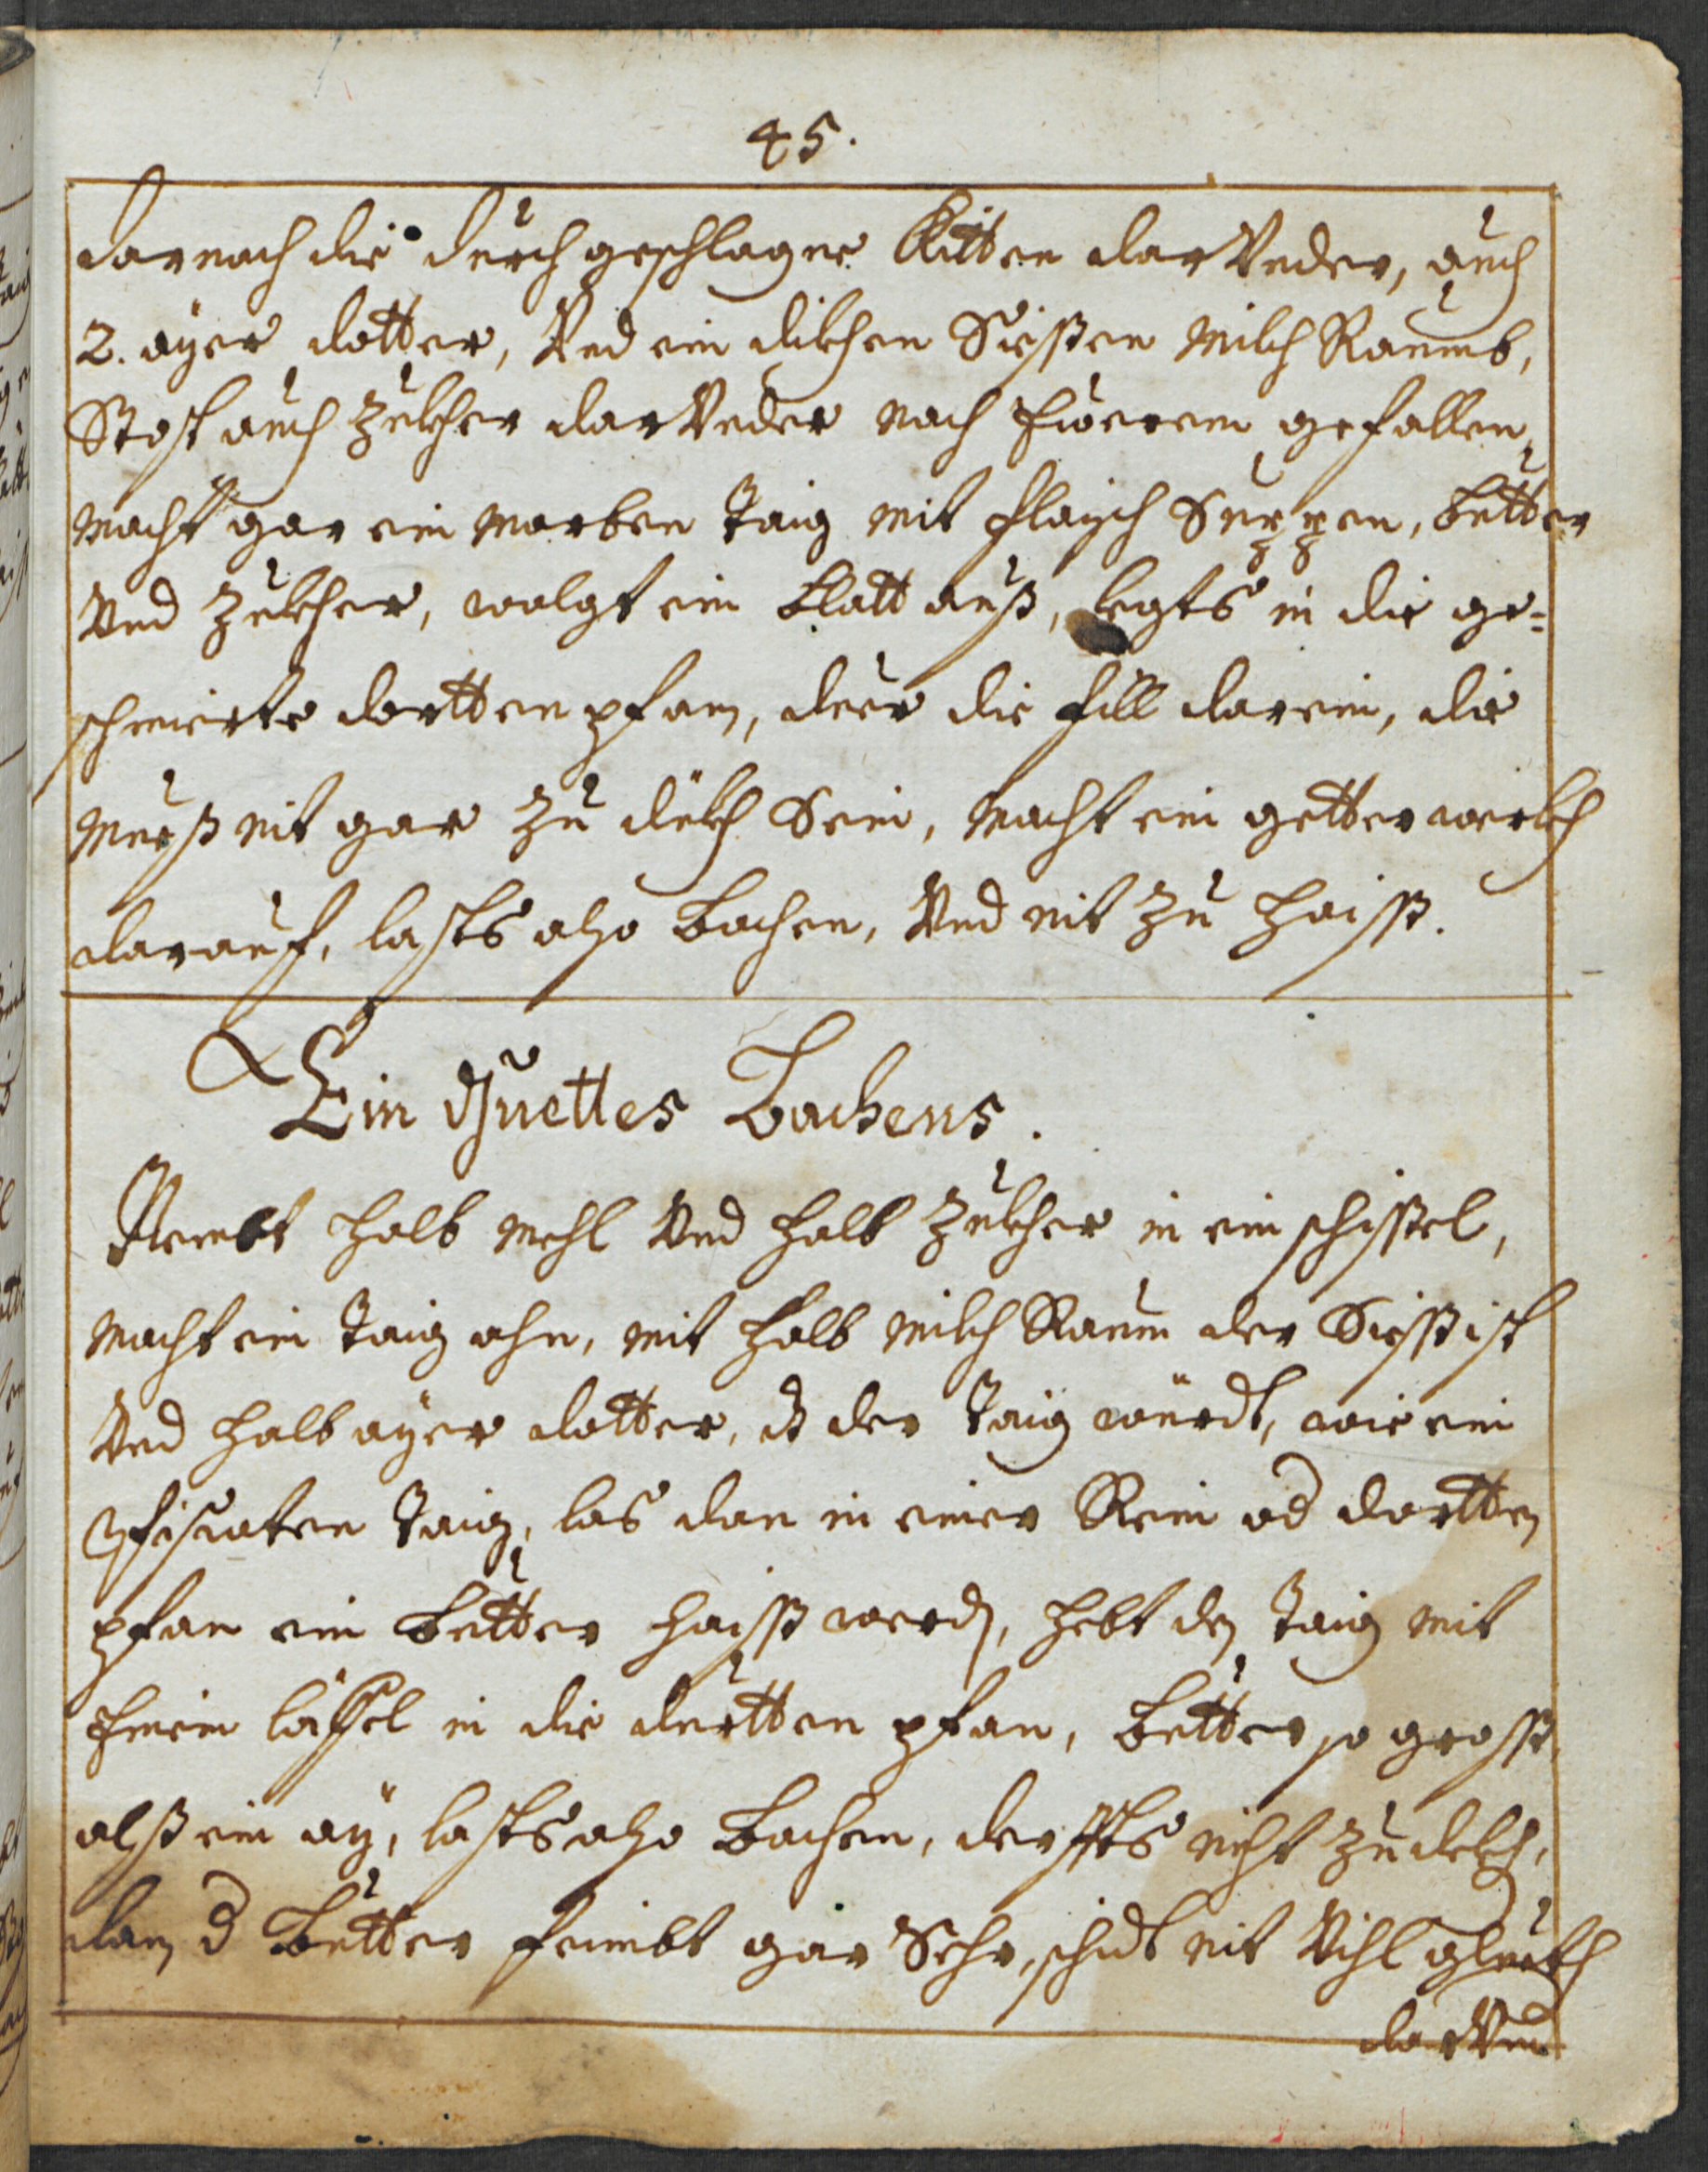 45.
darnach die durch geschlagne Kitten dar Vnder, auch
2. ayer dotter, Vnd ein dikhen Siessen milch Raumb,
Stost auch Zukher dar Vnder nach Eüerem gefallen,
macht gar ein marben Taig mit flaisch Suppen, butter
Vnd Zukher, walgt ein blatt auß, legts in die ge=
schmierte dortten pfan, die fill darein, die
mueß nit gar zu dükh Sein, macht ein getterwerkh
darauf, lasts also bachen, Vnd nit zu haiss.
Ein guettes Bachens.
Nembt halb mehl Vnd halb Zukher in ein schissel,
macht ein Taig ahn, mit halb milch Raum der Siess ist
Vnd halb ayer dotter, dz der Taig würdt, wie ein
Taig, las dan in einer Rein od dortten
pfan ein butter haiss werdn, hebt den Taig mit
Einem löffel in die dortten pfan, butter so gross
alß ein ay, lasts also bachen, derffts nicht zudekh,
dan d butter faimbt gar Sehr, schidt nit Vihl glueth
dar Vnd